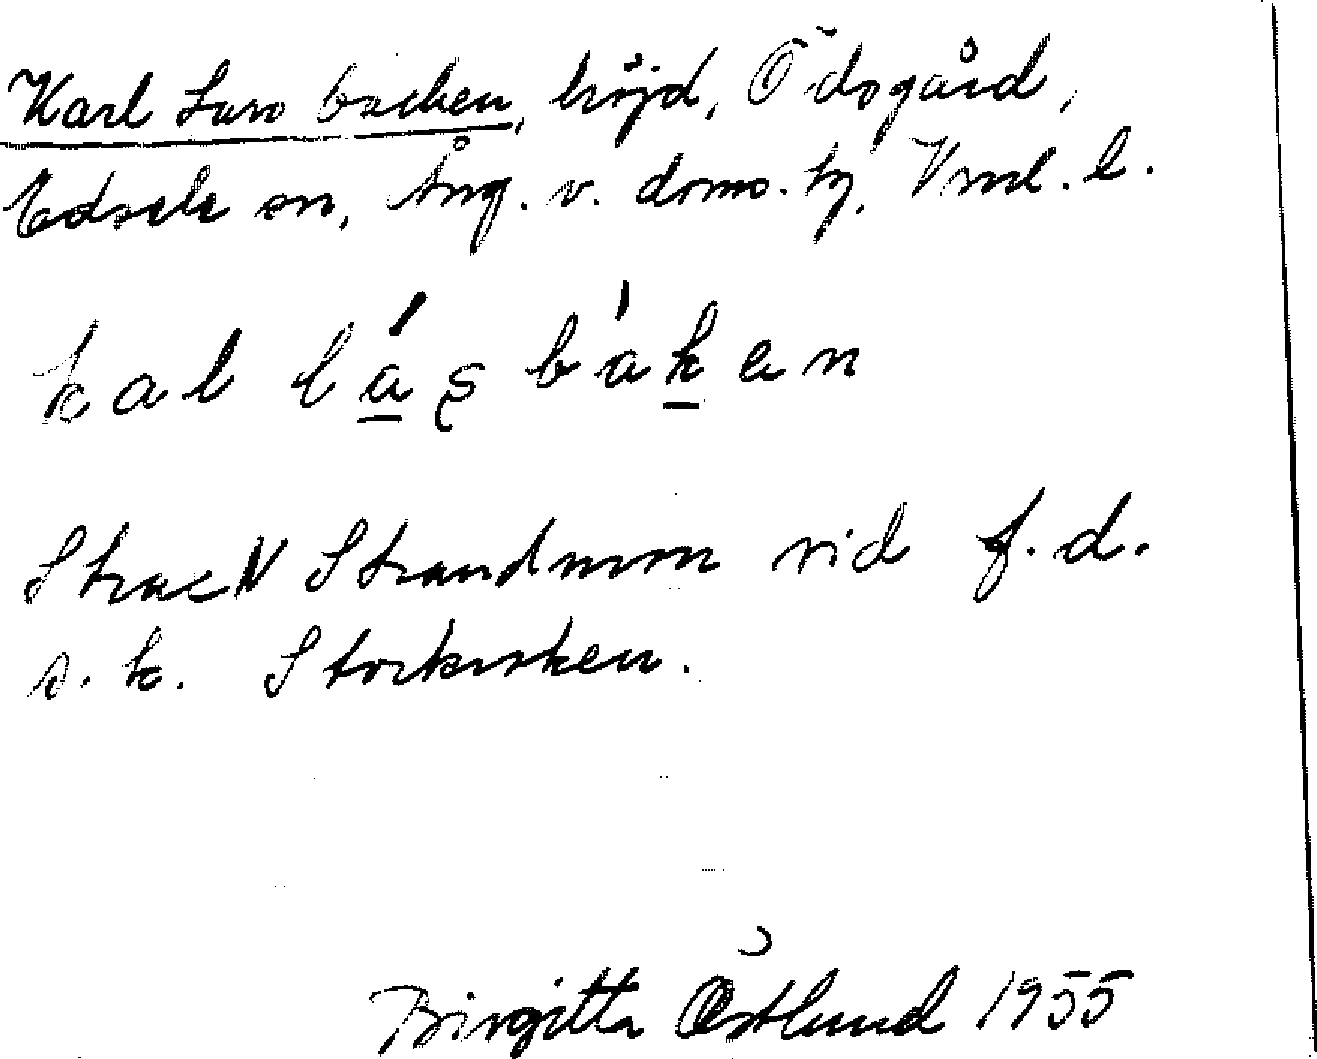 Karl Lars backen, höjd, Ödsgård,
Edsele sn, Ång. v. doms. hg, Vnl. l.
kal lás bákən
Strax N Strandmon vid f.d.
s.k. Storkirken.
Birgitta Östlund 1955